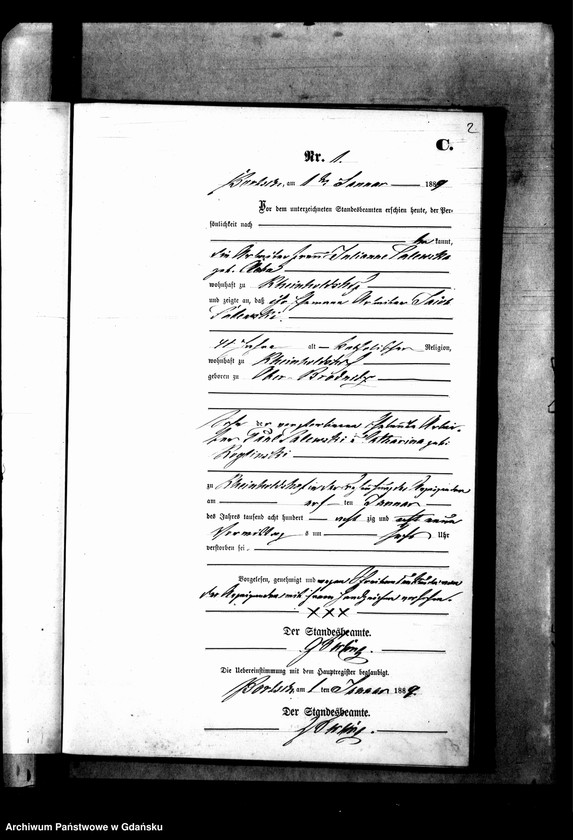 2
C.
Nr. 1.
am 1ten Januar 1889
Vor dem unterzeichneten Standesbeamten erschien heute, der Per-
sönlichkeit nach
be kannt,
die Arbeiterfrau Julianna Salewska
geb.
wohnhaft zu Rheinholdshof
und zeigte an, daß ihr Ehemann Arbeiter
Salewski
41 Jahre alt katholischer Religion,
wohnhaft zu Rheinholdshof
geboren zu Ober Brodnitz
Sohn der verstorbenen Eheleute Arbei-
ter Paul Salewski u Catharina geb.
zu Rheinholdshof in der Behausung des Anzeigenden
am ersten Januar
des Jahres tausend acht hundert acht zig und neun
Vormittag s um Uhr
verstorben sei.
Vorgelesen, genehmigt und wegen Schreibensunkunde von
der Anzeigenden mit ihrem Handzeichen versehen.
XXX
Der Standesbeamte.
Die Uebereinstimmung mit dem Hauptregister beglaubigt.
am 1 ten Januar 1889.
Der Standesbeamte.
Archiwum Państwowe w Gdańsku